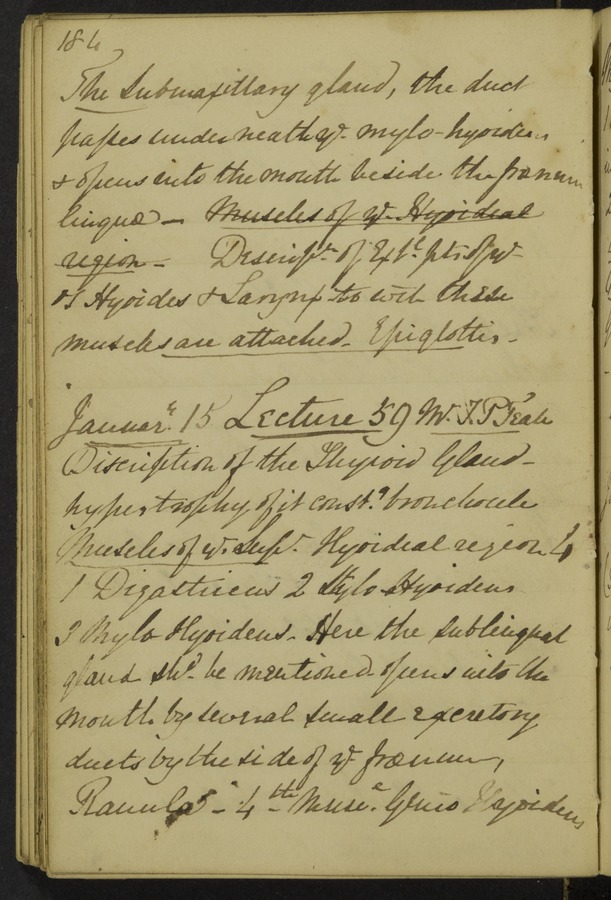 184
The Submaxillary gland, the duct
passes underneath ye. mylo-hyoideus
& opens into the mouth beside the frænum
linguæ - Muscles of ye. Hyoideal
region - Descript. of Ext. pts. of ye
os Hyoides & Larynx to wch these
muscles are attached - Epiglottis -
Januar. 15 Lecture 59 Mr. T. P Teale
Discription of the Thyroid Gland -
hypertrophy of it const.g bronchocele
Muscles of ye. Supr. Hyoideal region 4
1 Digastricus 2 Stylo Hyoideus
3 Mylo Hyoideus - Here the sublingual
gland shd. be mentioned opens into the
mouth by several small excretory
ducts by the side of ye frænum,
Ranula - 4th Musc. Genio Hyoideus